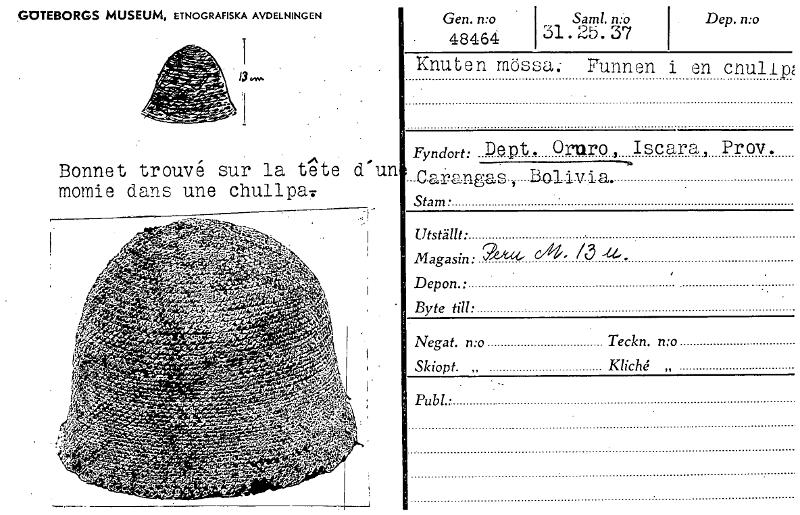 GÖTEBORGS MUSEUM, ETNOGRAFISKA AVDELNINGEN
13 cm
Bonnet trouvé sur la tête d'un
momie dans une chullpa.
Gen. n:o
48464
Saml. n:o
31.25.37
Dep. n:o
Knuten mössa. Funnen i en chullpa
Fyndort: Dept. Oruro, Iscara, Prov.
Carangas, Bolivia.
Stam:
Utställt:
Magasin: Peru M. 13 u.
Depon.:
Byte till:
Negat. n:o Teckn. n:o
Skiopt. „ Kliché „
Publ.: